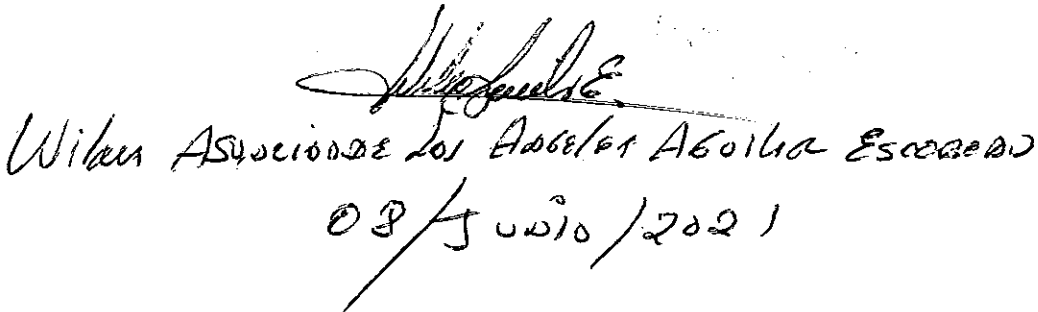 Wilber Asuncion de Los Angeles Aguilar Escobedo
08/Junio/2021